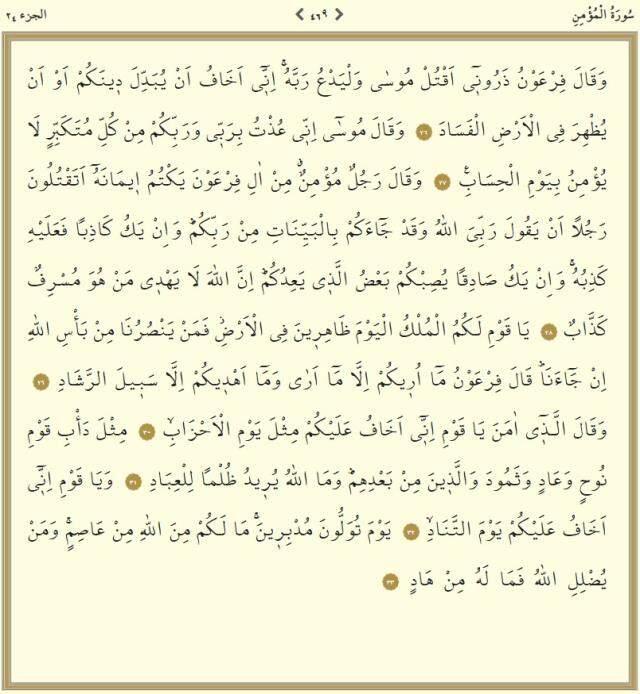 سُورَةُ الْمُؤْمِنِ ٤٦٩ الجزء ٢٤
وَقَالَ فِرْعَوْنُ ذَرُونٖٓى اَقْتُلْ مُوسٰى وَلْيَدْعُ رَبَّهُۚ اِنّٖٓى اَخَافُ اَنْ يُبَدِّلَ دٖينَكُمْ اَوْ اَنْ
يُظْهِرَ فِى الْاَرْضِ الْفَسَادَ ٢٦ وَقَالَ مُوسٰٓى اِنّٖى عُذْتُ بِرَبّٖى وَرَبِّكُمْ مِنْ كُلِّ مُتَكَبِّرٍ لَا
يُؤْمِنُ بِيَوْمِ الْحِسَابِۚ ٢٧ وَقَالَ رَجُلٌ مُؤْمِنٌۗ مِنْ اٰلِ فِرْعَوْنَ يَكْتُمُ اٖيمَانَهُٓ اَتَقْتُلُونَ
رَجُلًا اَنْ يَقُولَ رَبِّىَ اللّٰهُ وَقَدْ جَٓاءَكُمْ بِالْبَيِّنَاتِ مِنْ رَبِّكُمْۜ وَاِنْ يَكُ كَاذِبًا فَعَلَيْهِ
كَذِبُهُۚ وَاِنْ يَكُ صَادِقًا يُصِبْكُمْ بَعْضُ الَّذٖى يَعِدُكُمْۜ اِنَّ اللّٰهَ لَا يَهْدٖى مَنْ هُوَ مُسْرِفٌ
كَذَّابٌ ٢٨ يَا قَوْمِ لَكُمُ الْمُلْكُ الْيَوْمَ ظَاهِرٖينَ فِى الْاَرْضِۘ فَمَنْ يَنْصُرُنَا مِنْ بَأْسِ اللّٰهِ
اِنْ جَٓاءَنَاۜ قَالَ فِرْعَوْنُ مَٓا اُرٖيكُمْ اِلَّا مَٓا اَرٰى وَمَٓا اَهْدٖيكُمْ اِلَّا سَبٖيلَ الرَّشَادِ ٢٩
وَقَالَ الَّذٖٓى اٰمَنَ يَا قَوْمِ اِنّٖٓى اَخَافُ عَلَيْكُمْ مِثْلَ يَوْمِ الْاَحْزَابِۙ ٣٠ مِثْلَ دَأْبِ قَوْمِ
نُوحٍ وَعَادٍ وَثَمُودَ وَالَّذٖينَ مِنْ بَعْدِهِمْۜ وَمَا اللّٰهُ يُرٖيدُ ظُلْمًا لِلْعِبَادِ ٣١ وَيَا قَوْمِ اِنّٖٓى
اَخَافُ عَلَيْكُمْ يَوْمَ التَّنَادِۙ ٣٢ يَوْمَ تُوَلُّونَ مُدْبِرٖينَۚ مَا لَكُمْ مِنَ اللّٰهِ مِنْ عَاصِمٍۚ وَمَنْ
يُضْلِلِ اللّٰهُ فَمَا لَهُ مِنْ هَادٍ ٣٣